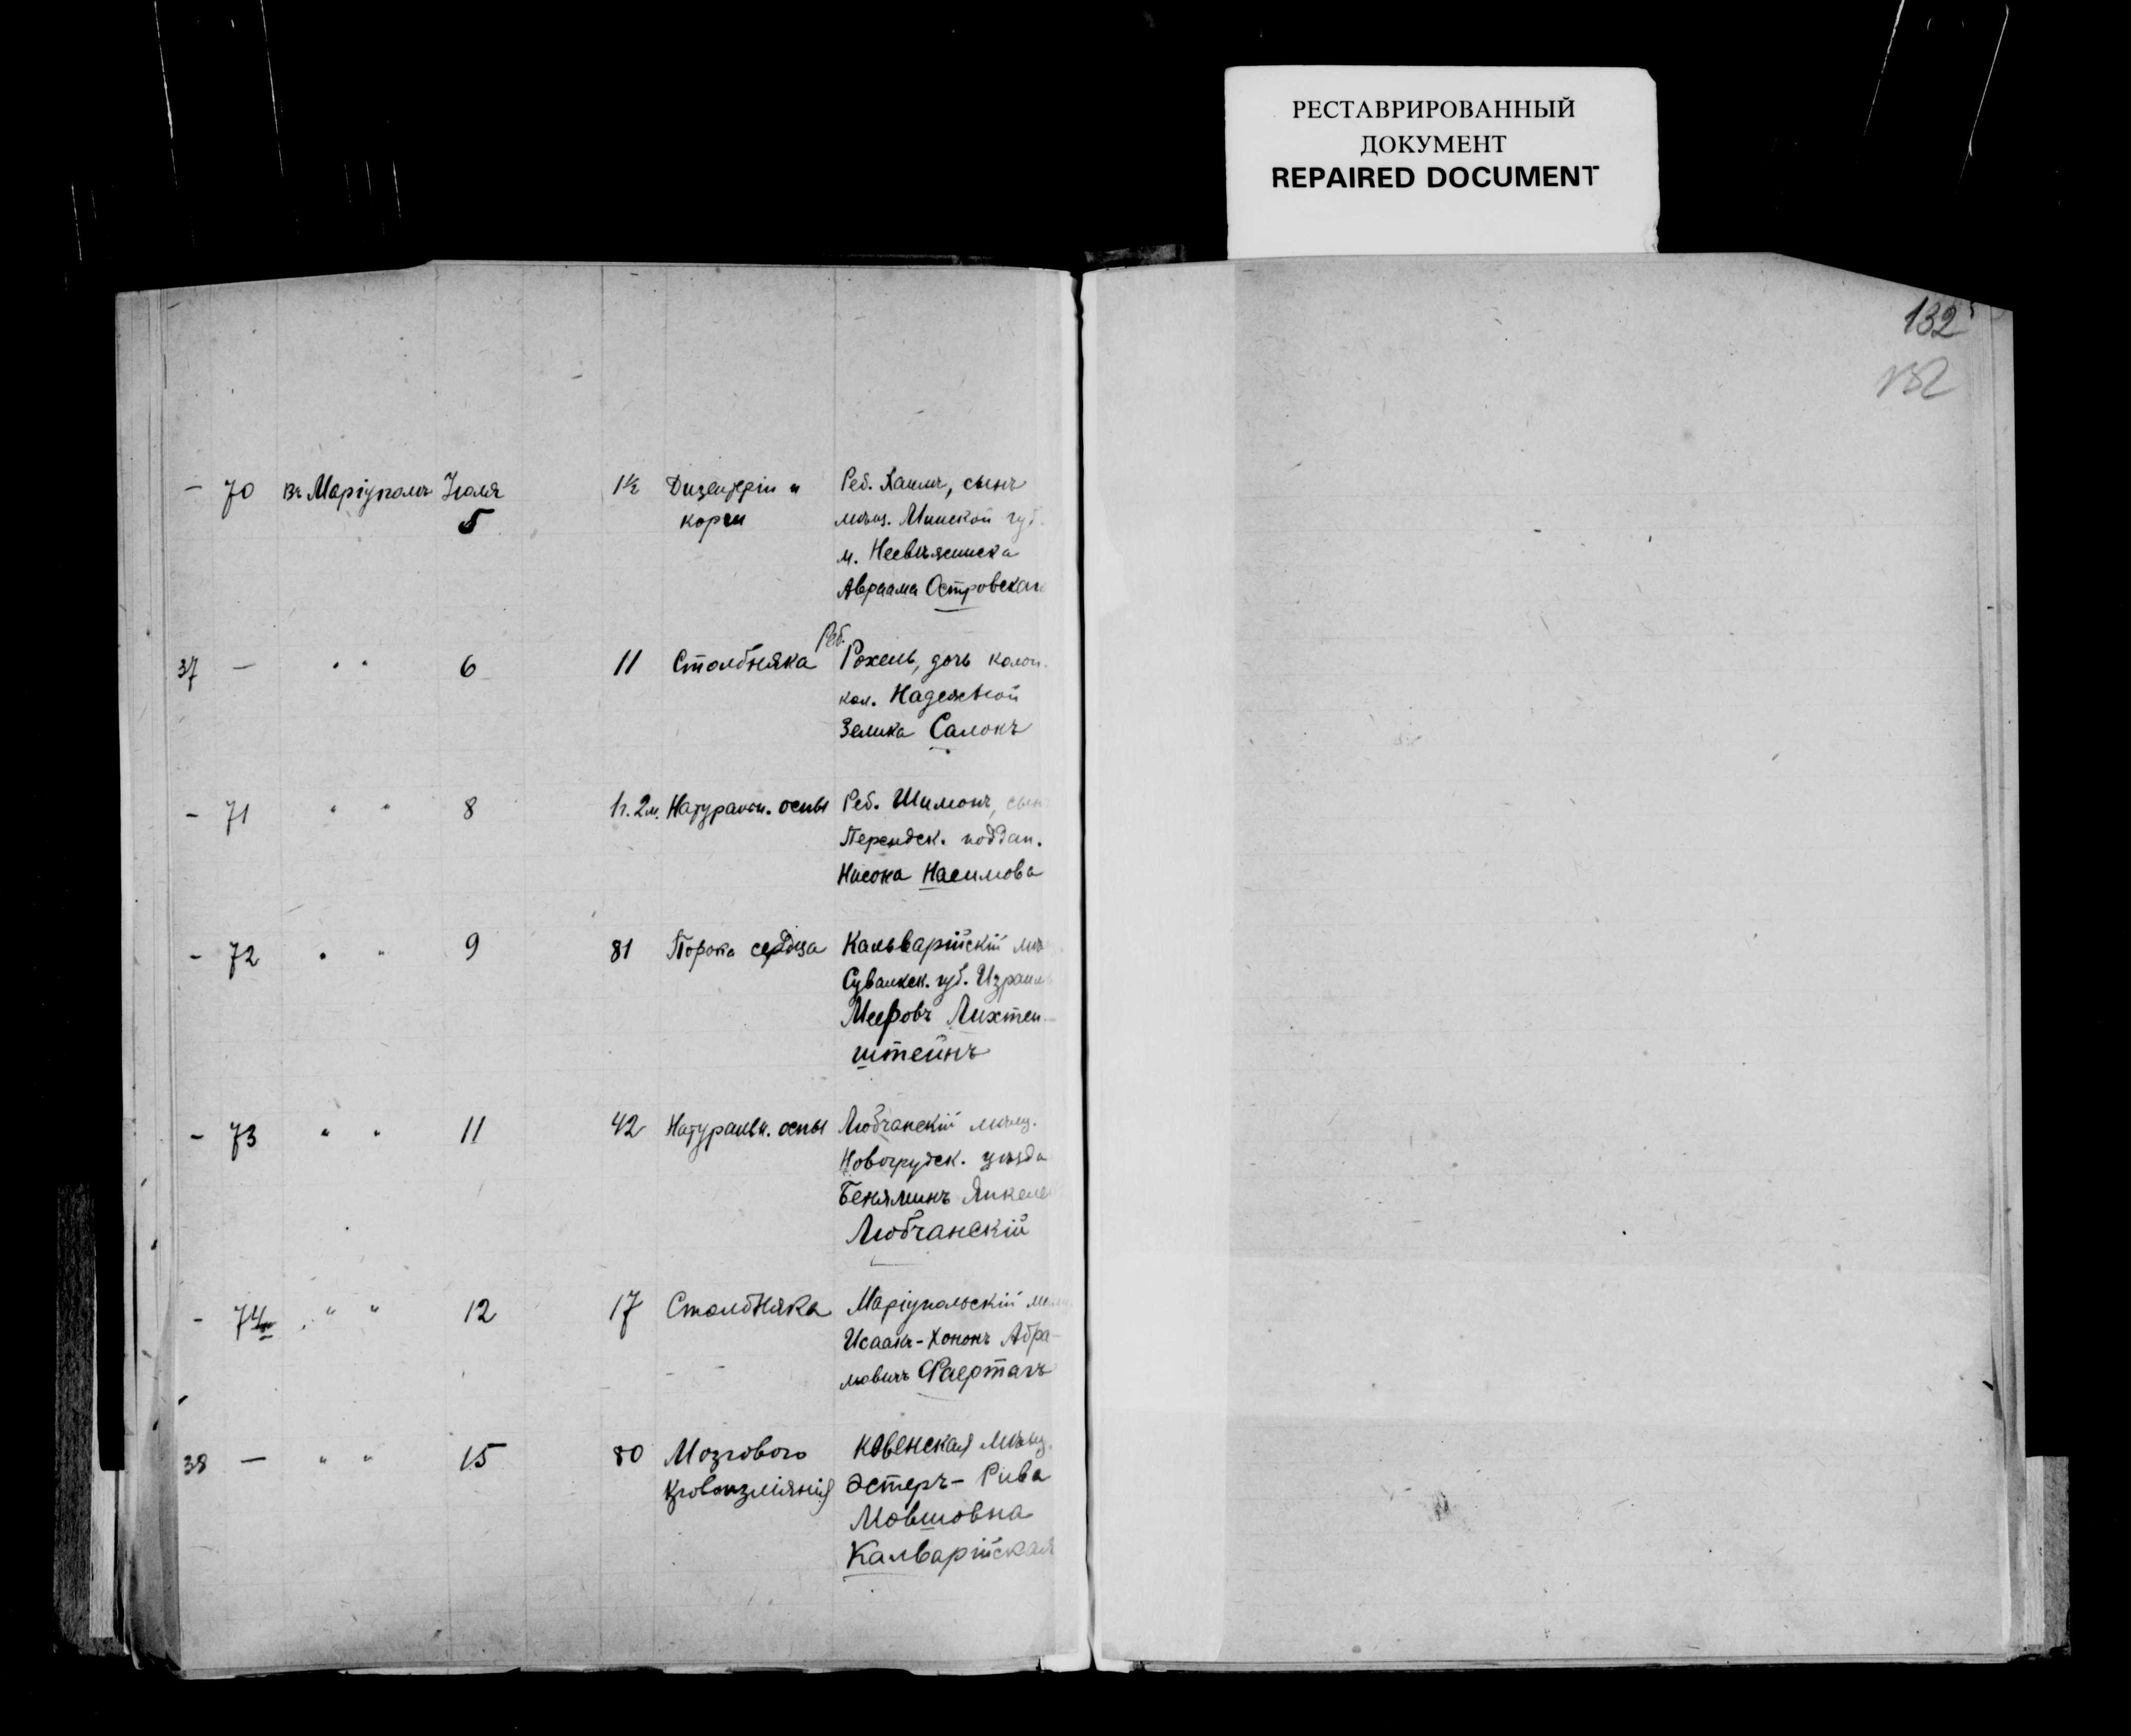 РЕСТАВРИРОВАННЫЙ
ДОКУМЕНТ
REPAIRED DOCUMENT
132
132
— 70 въ Маріуполѣ Іюля 5 1½ Дизентеріи и корчи
Реб. Хаимъ, сынъ
мѣщ. Минской губ.
м.
Авраама Островскаго
37 — " " 6 11 Столбняка
Реб.
Рохель, дочь колон.
кол. Надежной
Зелика Салокъ
- 71 " " 8 1 г. 2 м. Натуральн. оспы
Реб. Шимонъ, сынъ
Персидск. поддан.
Нисона Насимова
- 72 " " 9 81 Порока сердца
Кальварійскій мѣщ.
Сувалкск. губ. Израиль
Мееровъ Лихтен-
штейнъ
- 73 " " 11 42 Натуральн. оспы
Любчанскій мѣщ.
Новогрудск. уѣзда
Беняминъ
Любчанскій
- 74 " " 12 17 Столбняка
Маріупольскій мѣщ.
Исаакъ-Хононъ Абра-
мовичъ Фаертагъ
38 — " " 15 80 Мозгового
кровоизліянія
Ковенская мѣщ.
Эстеръ- Рива
Мовшовна
Калварійская